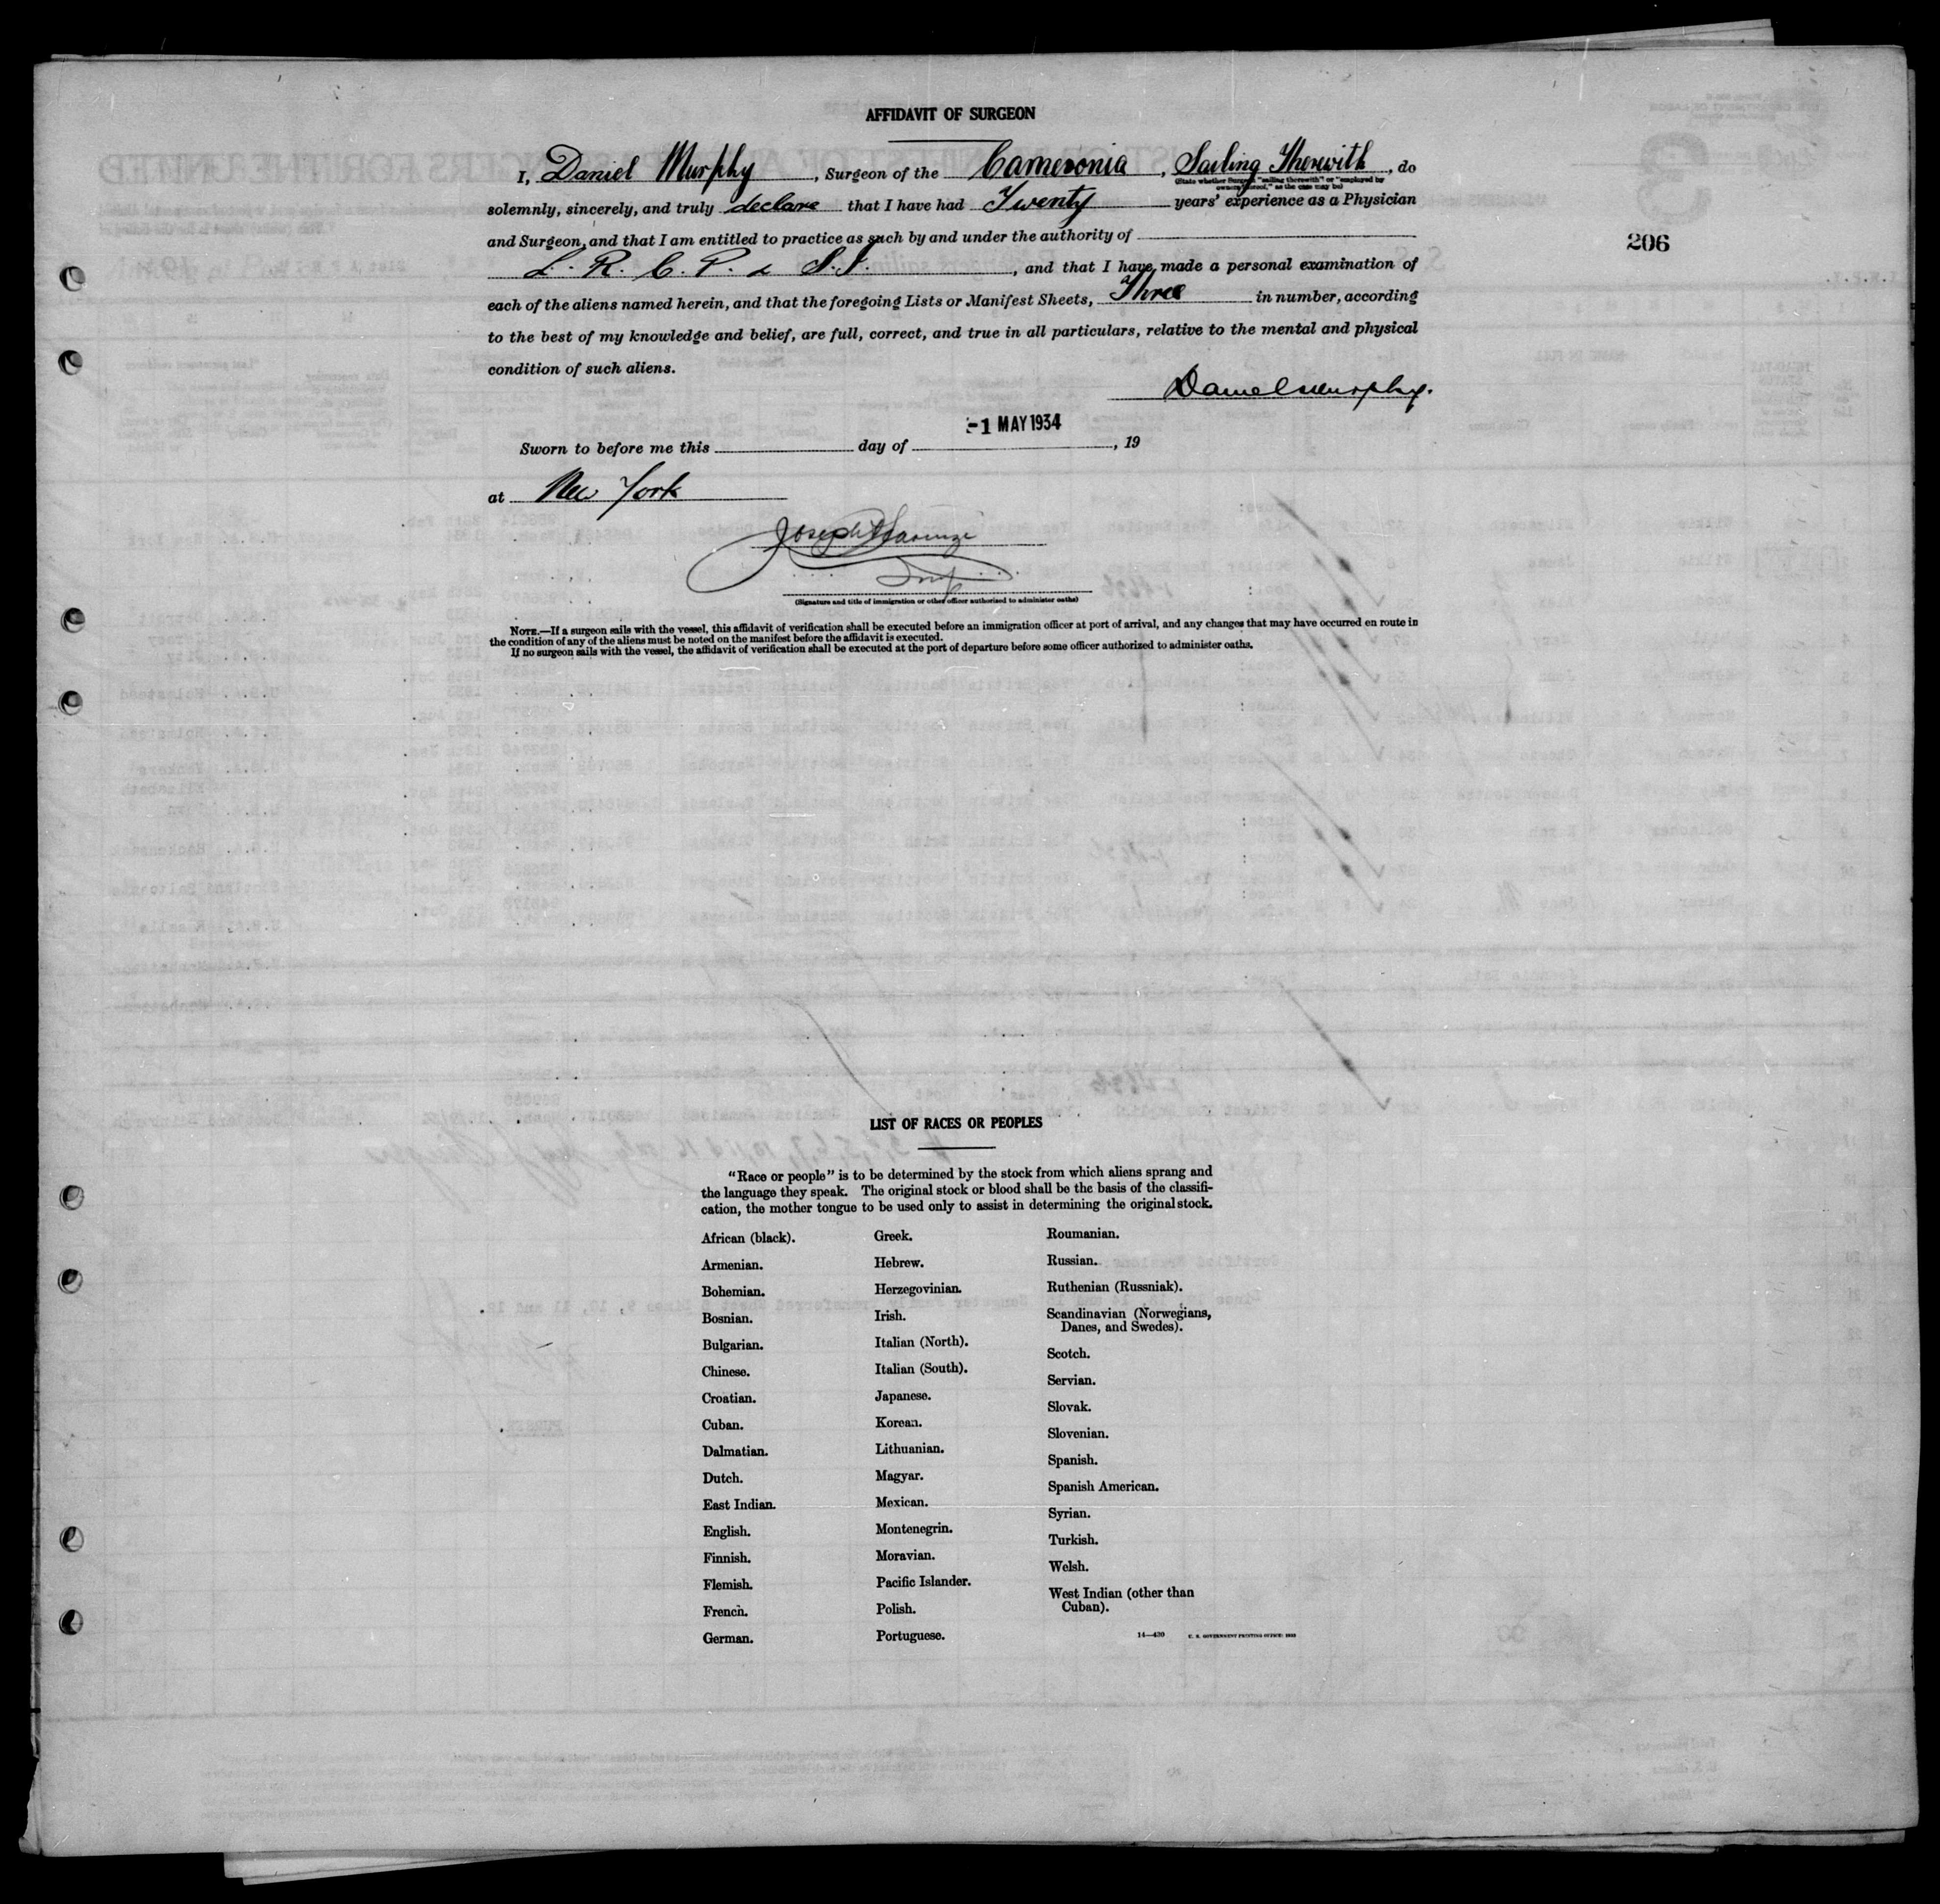 AFFIDAVIT OF SURGEON
206
I, Daniel Murphy, Surgeon of the Cameronia, Sailing Therewith, do
(State whether Surgeon "sailing therewith" or "employed by
owners thereof," as the case may be)
solemnly, sincerely, and truly declare that I have had Twenty years' experience as a Physician
and Surgeon, and that I am entitled to practice as such by and under the authority of
L. R. C. P. & S. I., and that I have made a personal examination of
each of the aliens named herein, and that the foregoing Lists or Manifest Sheets, Three in number, according
to the best of my knowledge and belief, are full, correct, and true in all particulars, relative to the mental and physical
condition of such aliens.
Daniel Murphy.
-1 MAY 1934
Sworn to before me this day of , 19
at New York
Joseph
Insp
(Signature and title of immigration or other officer authorized to administer oaths)
NOTE.—If a surgeon sails with the vessel, this affidavit of verification shall be executed before an immigration officer at port of arrival, and any changes that may have occurred en route in
the condition of any of the aliens must be noted on the manifest before the affidavit is executed.
If no surgeon sails with the vessel, the affidavit of verification shall be executed at the port of departure before some officer authorized to administer oaths.
LIST OF RACES OR PEOPLES
"Race or people" is to be determined by the stock from which aliens sprang and
the language they speak. The original stock or blood shall be the basis of the classifi-
cation, the mother tongue to be used only to assist in determining the original stock.
African (black).
Armenian.
Bohemian.
Bosnian.
Bulgarian.
Chinese.
Croatian.
Cuban.
Dalmatian.
Dutch.
East Indian.
English.
Finnish.
Flemish.
French.
German.
Greek.
Hebrew.
Herzegovinian.
Irish.
Italian (North).
Italian (South).
Japanese.
Korean.
Lithuanian.
Magyar.
Mexican.
Montenegrin.
Moravian.
Pacific Islander.
Polish.
Portuguese.
Roumanian.
Russian.
Ruthenian (Russniak).
Scandinavian (Norwegians,
Danes, and Swedes).
Scotch.
Servian.
Slovak.
Slovenian.
Spanish.
Spanish American.
Syrian.
Turkish.
Welsh.
West Indian (other than
Cuban).
14—430 U. S. GOVERNMENT PRINTING OFFICE: